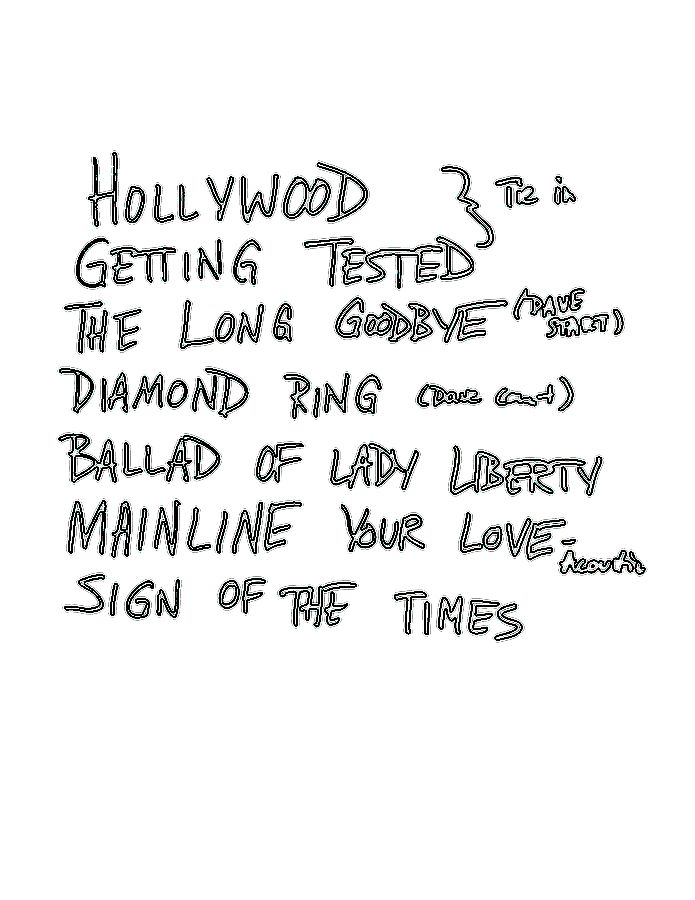 HOLLYWOOD } Tie in
GETTING TESTED
THE LONG GOODBYE (DAVE START)
DIAMOND RING (Dave Count)
BALLAD OF LADY LIBERTY
MAINLINE YOUR LOVE - Acoustic
SIGN OF THE TIMES